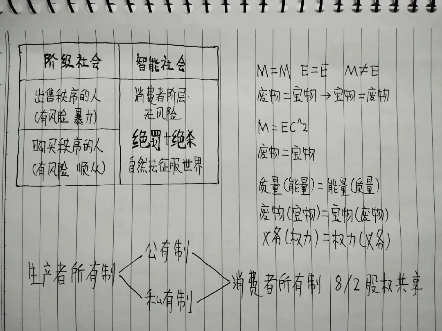 阶级社会 智能社会
出售秩序的人 消费者所层
(有风险 暴力) 无风险
购买秩序的人 绝罚十绝杀
(有风险 顺从) 自然去征服世界
M=M E=E M≠E
废物=宝物→宝物=废物
M=EC^2
废物=宝物
质量(能量)=能量(质量)
废物(宝物)=宝物(废物)
义务(权力)=权力(义务)
公有制
生产者所有制 消费者所有制 8/2股权共享
私有制